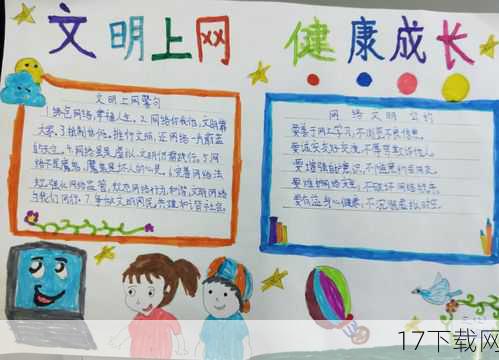 文明上网 健康成长
文明上网警句
1.绿色网络,幸福人生。2.网络你我他,文明靠
大家。3.抵制低俗,推行文明,还网络一片蔚蓝
的天空。4.网络虽是虚拟,文明仍需践行。5.网
络不是魔鬼,魔鬼是坏人的心灵。6.完善网络法
规范网络行为,和谐文明网络
与我们同行。7.争做文明网民,共建和谐社会。
网络文明公约
要善于网上学习,不浏览不良信息。
要诚实友好交流,不辱骂欺诈他人。
要增强自护意识,不随意约会网友。
要维护网络安全,不破坏网络秩序。
要有益身心健康,不沉溺虚拟时空。
17下载网